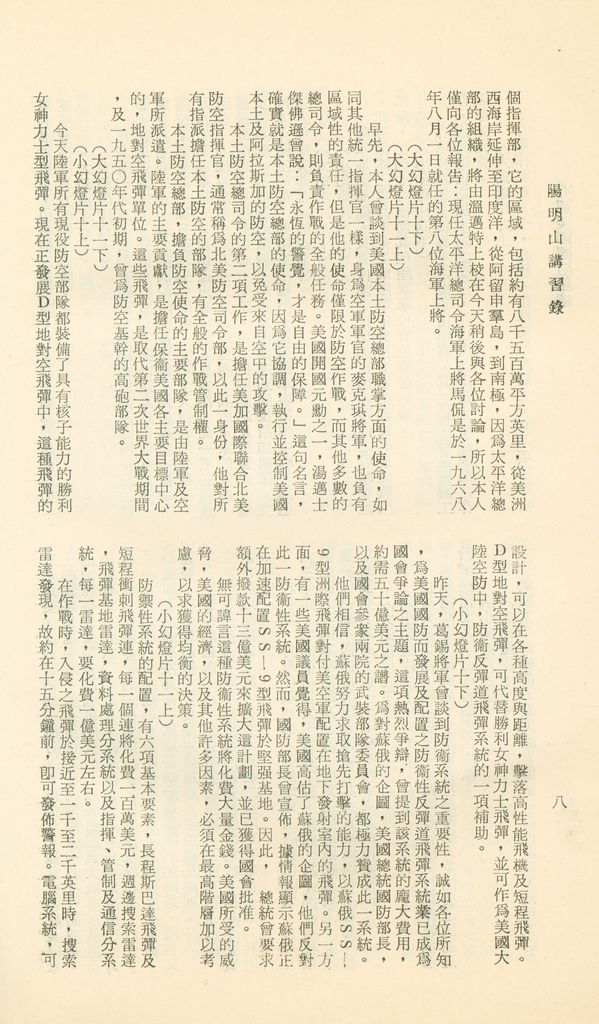 陽明山講習錄
八
個指揮部，它的區域，包括約有八千五百萬平方英里，從美洲
西海岸延伸至印度洋，從阿留申羣島，到南極，因爲太平洋總
部的組織，將由溫邁特上校在今天稍後與各位討論，所以本人
僅向各位報告：現任太平洋總司令海軍上將馬侃是於一九六八
年八月一日就任的第八位海軍上將。
（大幻燈片十下）
（大幻燈片十一上）
早先，本人曾談到美國本土防空總部職掌方面的使命，如
同其他統一指揮官一樣，身爲空軍軍官的麥克琪將軍，也負有
區域性的責任，但是他的使命僅限於防空作戰，而其他多數的
總司令，則負責作戰的全般任務。美國開國元勳之一，湯邁士
傑佛遜曾說：「永恆的警覺，才是自由的保障。」這句名言，
確實就是本土防空總部的使命，因爲它協調，執行並控制美國
本土及阿拉斯加的防空，以免受來自空中的攻擊。
本土防空總司令的第二項工作，是擔任美加國際聯合北美
防空指揮官，通常稱爲北美防空司令部，以此一身份，他對所
有指派擔任本土防空的部隊，有全般的作戰管制權。
本土防空總部，擔負防空使命的主要部隊，是由陸軍及空
軍所派遣。陸軍的主要貢獻，是擔任保衞美國各主要目標中心
的，地對空飛彈單位。這些飛彈，是取代第二次世界大戰期間
，及一九五〇年代初期，曾爲防空基幹的高砲部隊。
（大幻燈片十一下）
（小幻燈片十上）
今天陸軍所有現役防空部隊都裝備了具有核子能力的勝利
女神力士型飛彈。現在正發展D型地對空飛彈中，這種飛彈的
設計，可以在各種高度與距離，擊落高性能飛機及短程飛彈。
D型地對空飛彈，可代替勝利女神力士飛彈，並可作爲美國大
陸空防中，防衞反彈道飛彈系統的一項補助。
（小幻燈片十下）
昨天，葛錫將軍曾談到防衞系統之重要性，誠如各位所知
，爲美國國防而發展及配置之防衞性反彈道飛彈系統業已成爲
國會爭論之主題，這項熱烈爭辯，曾提到該系統的龐大費用，
約需五十億美元之譜。爲對蘇俄的企圖，美國總統國防部長，
以及國會參衆兩院的武裝部隊委員會，都極力贊成此一系統。
他們相信，蘇俄努力求取搶先打擊的能力，以蘇俄SS｜
9型洲際飛彈對付美空軍配置在地下發射室內的飛彈。另一方
面，有一些美國議員覺得，美國高估了蘇俄的企圖，他們反對
此一防衞性系統。然而，國防部長曾宣佈，據情報顯示蘇俄正
在加速配置SS｜9型飛彈於堅强基地。因此，總統曾要求
額外撥款十三億美元來擴大這計劃，並已獲得國會批准。
無可諱言這種防衞性系統將化費大量金錢。美國所受的威
脅，美國的經濟，以及其他許多因素，必須在最高階層加以考
慮，以求獲得均衡的決策。
（小幻燈片十一上）
防禦性系統的配置，有六項基本要素，長程斯巴達飛彈及
短程衝刺飛彈連，每一個連將化費一百萬美元，週邊搜索雷達
，飛彈基地雷達，資料處理分系統以及指揮、管制及通信分系
統，每一雷達，要化費一億美元左右。
在作戰時，入侵之飛彈於接近至一千至二千英里時，搜索
雷達發現，故約在十五分鐘前，卽可發佈警報。電腦系統，可